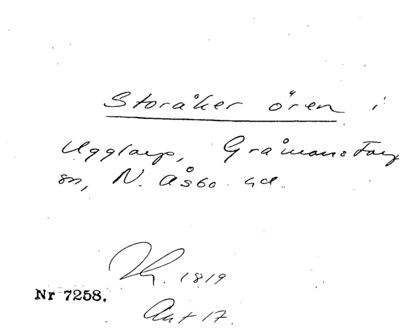 Storåker ören i
Ugglarp, Gråmanstorp
sn, N. Åsbo hd.
1819
Nr 7258.
Akt 17.